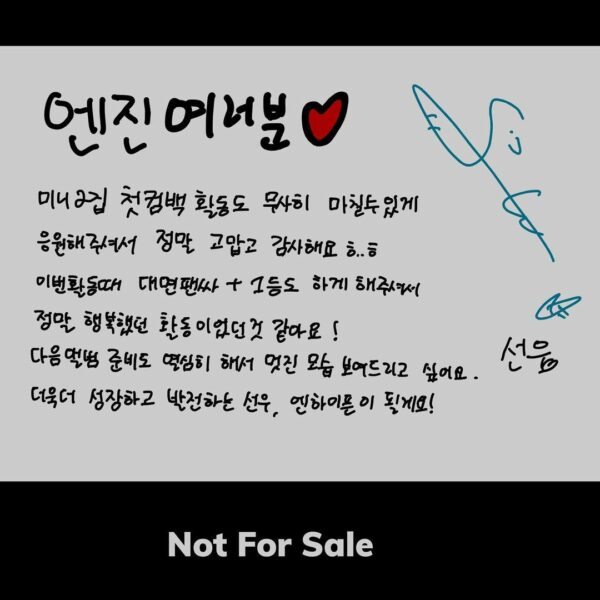 엔진 여러분
미니2집 첫컴백 활동도 무사히 마칠수있게
응원해주셔서 정말 고맙고 감사해요 ㅎ..ㅎ
이번활동때 대면팬싸 + 1등도 하게 해주셔서
정말 행복했던 활동이었던것 같아요!
다음앨범 준비도 열심히 해서 멋진 모습 보여드리고 싶어요.
더욱더 성장하고 발전하는 선우, 엔하이픈이 될게요!
선우
Not For Sale